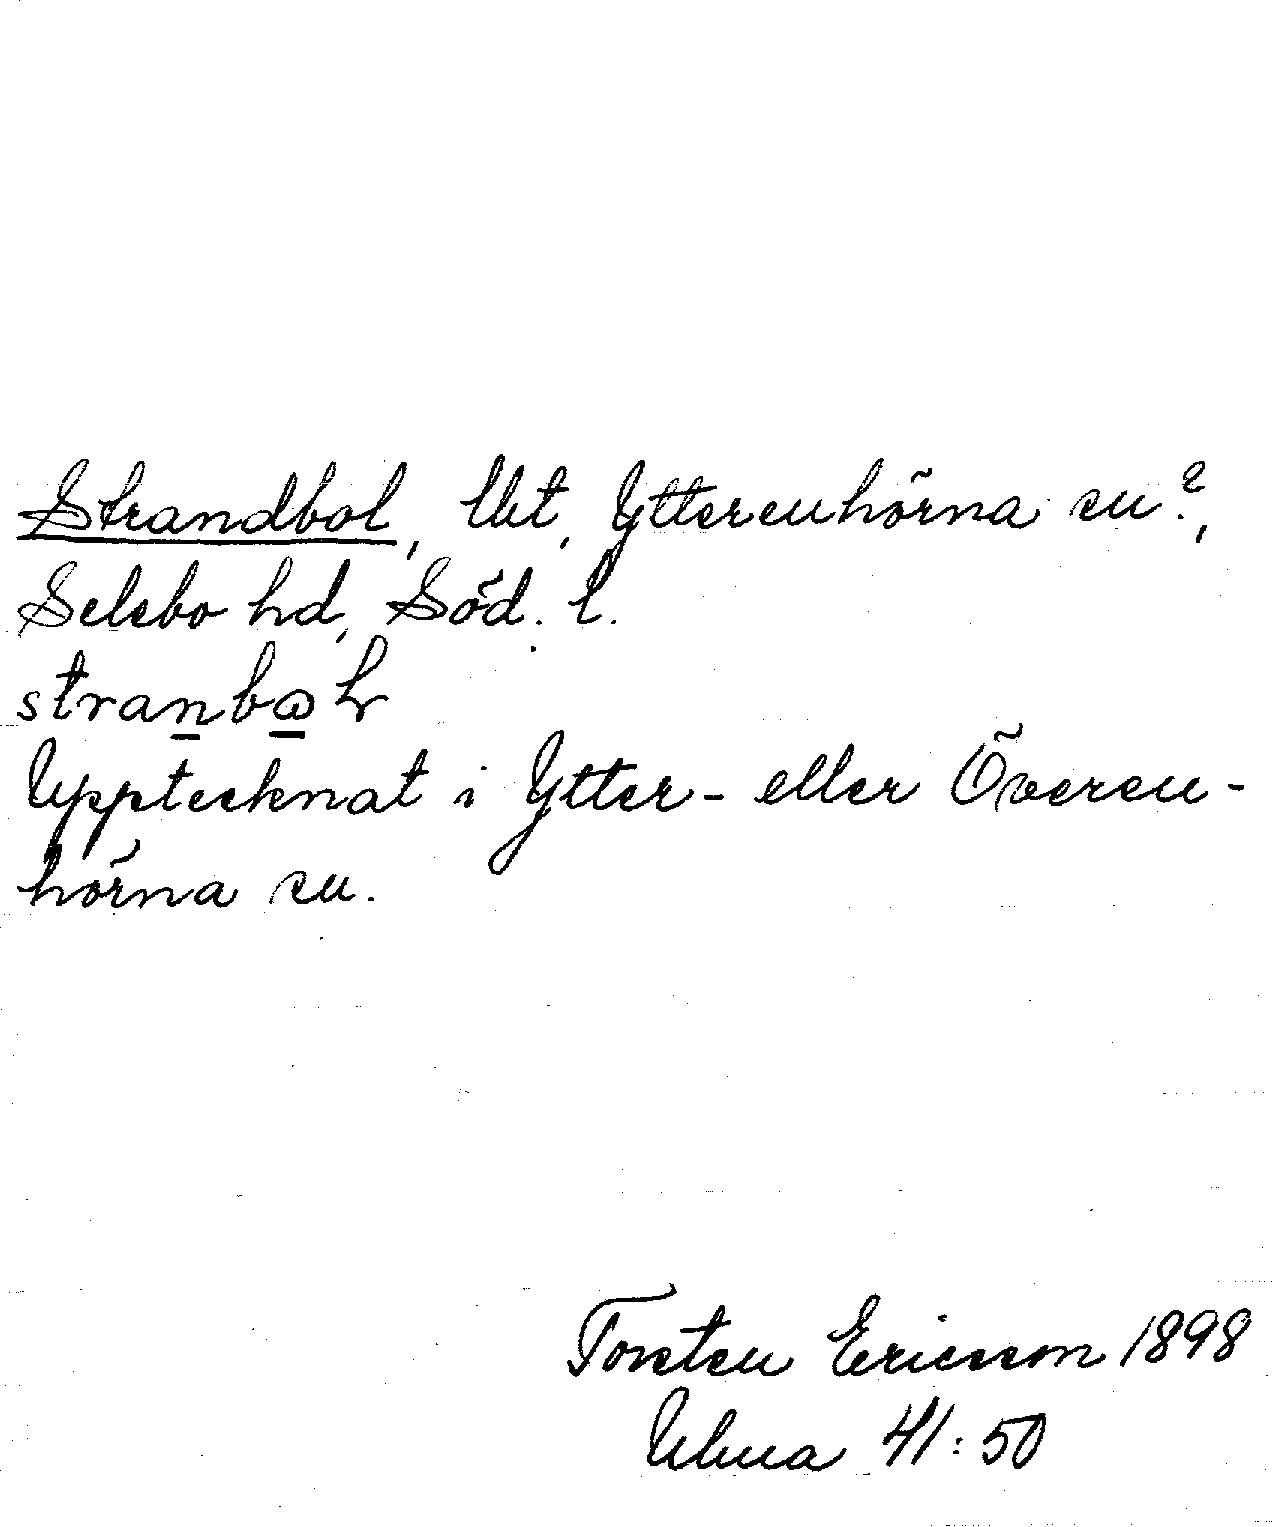 Strandbol, Ukt, Ytterenhörna sn?,
Selebo hd, Söd. l.
Upptecknat i Ytter- eller Överen-
hörna sn.
Torsten Ericsson 1898
Ulma 41:50